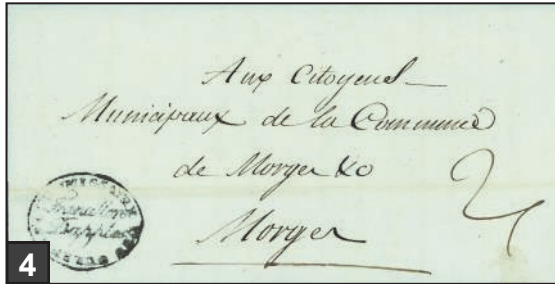 Aux Citoyens
Municipaux de la Commune
de Morges &c
Morges
2
4